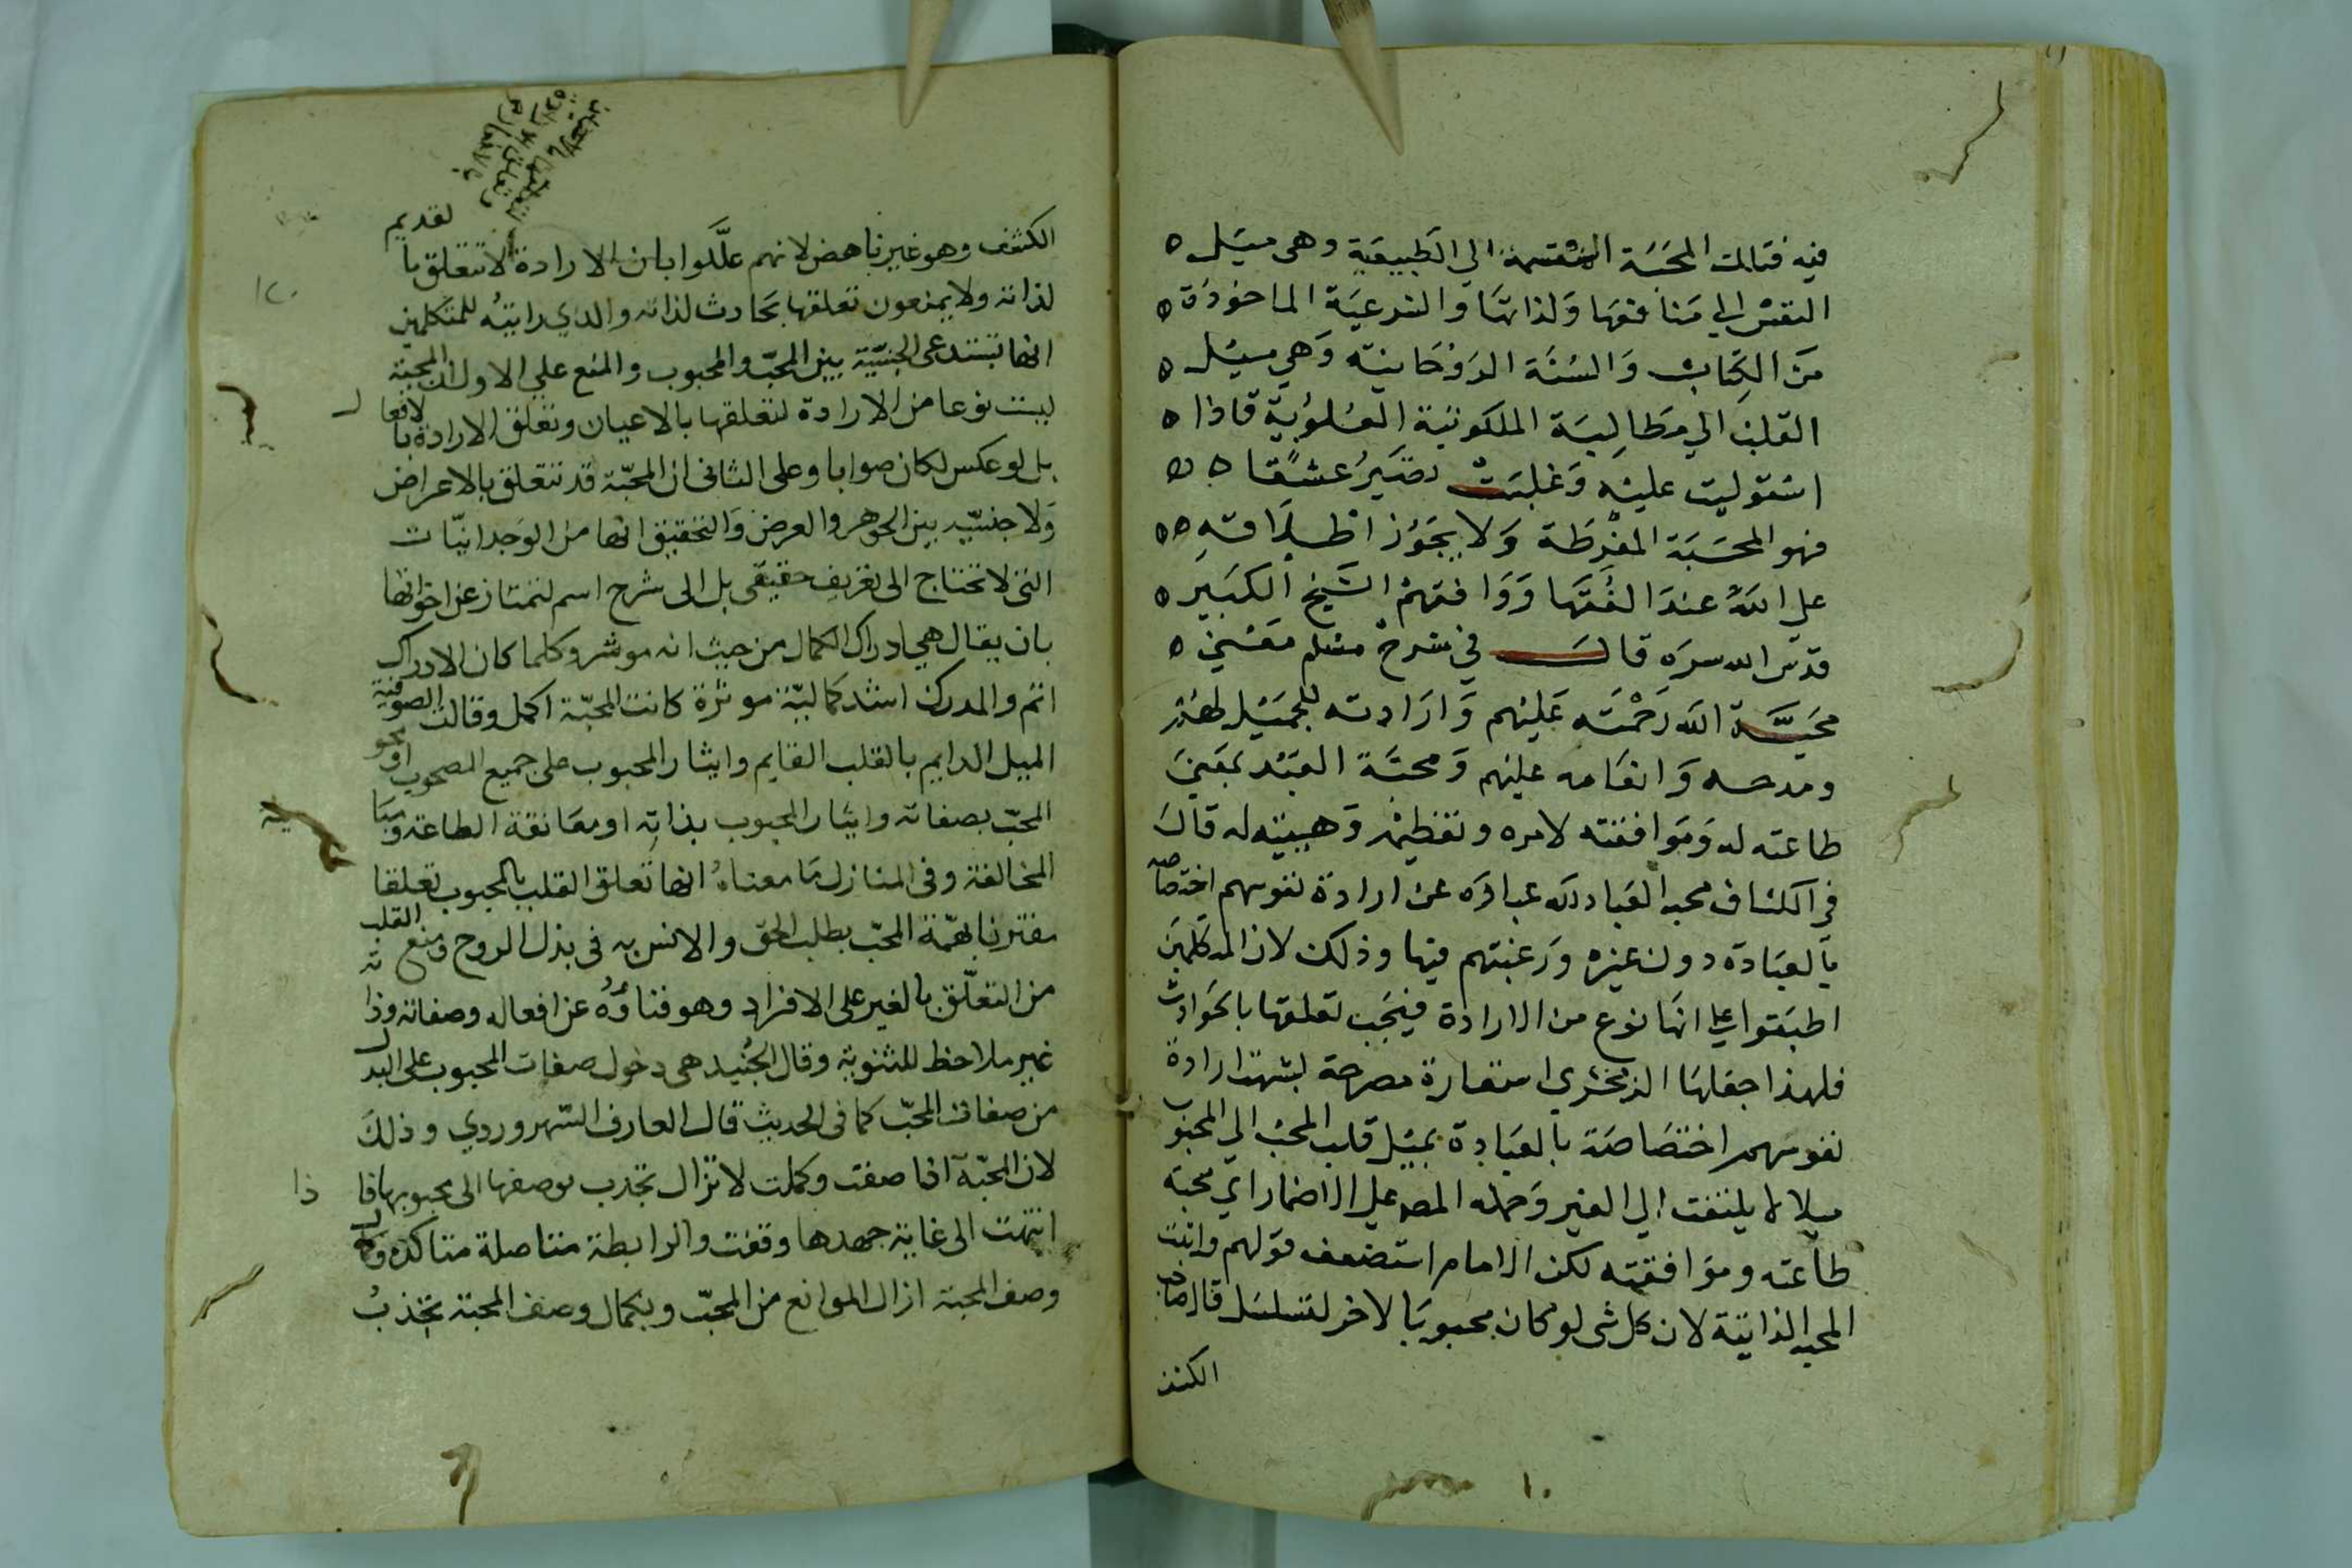 فيه فقالت المحبة المنقسمة الي الطبيعية وهى ميل ه
النفس الي منافعها ولذاتها والشرعية الماخوذة ه
من الكتاب والسنة الروحانية وهي ميل ه
القلب الي مطالبه الملكوتية العلوية فاذا ه
استوليت عليه وغلبت تصير عشقا ه ه
فهو المحبة المفرطة ولا يجوز اطلاقه ه ه
علي الله عند الفقها ووافقهم الشيخ الكبير ه
قدس الله سره قال في شرح مسلم معنى ه
محبة الله رحمته عليهم وارادته للجميل لهم
ومدحه وانعامه عليهم ومحبة العبد بمعنى
طاعته له وموافقته لامره وتعظيمه وهيبته له قال
فى الكشاف محبه العباد لله عباره عن ارادة نفوسهم اختصاصه
بالعبادة دون غيره ورغبتهم فيها وذلك لان المتكلمين
اطبقوا علي انها نوع من الارادة فيجب تعلقها بالحوادث
فلهذا جعلها الزمخشري استعارة مصرحة لشبهة ارادة
نفوسهم اختصاصة بالعبادة بميل قلب المحب الي المحبوب
ميلا لا يلتفت الي الغير وحمله المص علي الاضمار اي محبة
طاعته وموافقته لكن الامام استضعف قولهم واثبت
المحبه الذاتية لان كل شى لو كان محبوبا لاخر لتسلسل قال صاحب
الكشف
الكشف وهو غير ناهض لانهم عللوا بان الارادة لا تتعلق با
لقديم
لذاته ولا يمنعون تعلقها بحادث لذاته والذي رايته للمتكلمين
انها تستدعى الجنسية بين المحب والمحبوب والمنع علي الاول ان المحبة
ليست نوعا من الارادة لتعلقها بالاعيان وتعلق الارادة با
لافعال
بل لو عكس لكان صوابا وعلى الثانى ان المحبة قد تتعلق بالاعراض
ولا جنسيه بين الجوهر والعرض والتحقيق انها من الوجدانيات
التى لا تحتاج الى تعريف حقيقى بل الى شرح اسم لتمتاز عن اخواتها
بان يقال هي ادراك الكمال من حيث انه موثر وكلما كان الادراك
اتم والمدرك اشد كمالية موثرة كانت المحبة اكمل وقالت الصوفية
الميل الدايم بالقلب القايم وايثار المحبوب على جميع المصحوب او محو
المحب بصفاته وايثار المحبوب بذاته او معانقة الطاعة ومبا
ينة
المخالفة وفى المنازل ما معناه انها تعلق القلب بالمحبوب تعلقا
مقترنا بهمة المحب بطلب الحق والانس به فى بذل الروح ومنع القلب
من التعلق بالغير على الافراد وهو فناؤه عن افعاله وصفاته وذا
ته
غير ملاحظ للمثنوية وقال الجنيد هى دخول صفات المحبوب على البدل
من صفات المحب كما فى الحديث قال العارف السهروردي وذلك
لان المحبة اذا صفت وكملت لا تزال تجذب بوصفها الى محبوبها فا
ذا
انتهت الى غاية جهدها وقفت والرابطة متاصلة متاكدة وكمال
وصف المحبة ازال الموانع من المحب وبكمال وصف المحبة تجذب